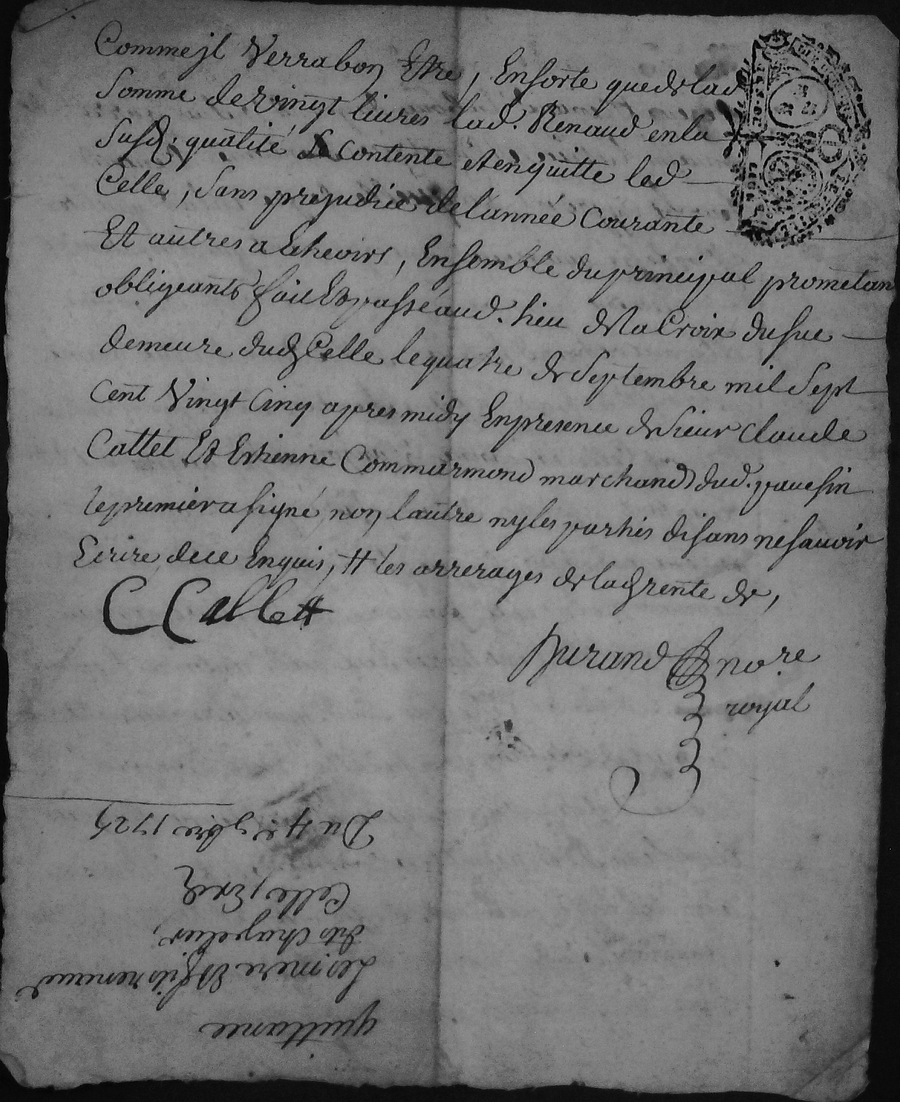 Comme jl Verra bon Estre, Ensorte que de lad.
Somme de vingt liures lad. Renaud en la
susd. qualité Se contente et en quitte led.
Celle, sans prejudice de l'année Courante
Et autres a Echeoirs, Ensemble du principal promettant
obligeants fait Et passé aud. lieu de la Croix du sue
demeure dud. Celle le quatre de Septembre mil Sept
cent Vingt Cinq apres midy En presence de Sieur Claude
Cattet Et Estienne Commarmond marchand dud. pauesin
le premier a signé non l'autre ny les parties disans ne sauoir
Ecrire de ce Enquis, # les arrerages de lad. rente de,
C Cattett
Durand no.re
royal
quittance
Les mere Et fils renaud
dits Chapelier,
Celle, Er
Du 4e 7bre 1725